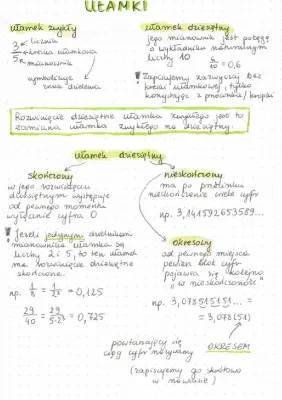 UŁAMKI
ułamek zwykły
3/5
licznik
kreska ułamkowa
mianownik
symbolizuje
znak dzielenia
ułamek dziesiętny
jego mianownik jest potęgą
o wykładniku naturalnym
liczby 10
6/10 = 0,6
! Zapisujemy zazwyczaj bez
kreski ułamkowej, tylko
korzystając z przecinka/kropki
Rozwinięcie dziesiętne ułamka zwykłego jest to
zamiana ułamka zwykłego na dziesiętny.
ułamek dziesiętny
skończony
w jego rozwinięciu
dziesiętnym występuje
od pewnego momentu
wyłącznie cyfra 0
! Jeżeli jedynymi dzielnikami
mianownika ułamka są
liczby 2 i 5, to ten ułamek
ma rozwinięcie dziesiętne
skończone.
np. 1/8 = 1/2³ = 0,125
29/40 = 29/5·2³ = 0,725
nieskończony
ma po przecinku
nieskończenie wiele cyfr
np. 3,141592653589...
okresowy
od pewnego miejsca
pewien blok cyfr
pojawia się kolejno
"w nieskończoność"
np. 3,078515151... =
= 3,078(51)
powtarzający się
ciąg cyfr nazywamy
OKRESEM
(zapisujemy go skrótowo
w nawiasie)